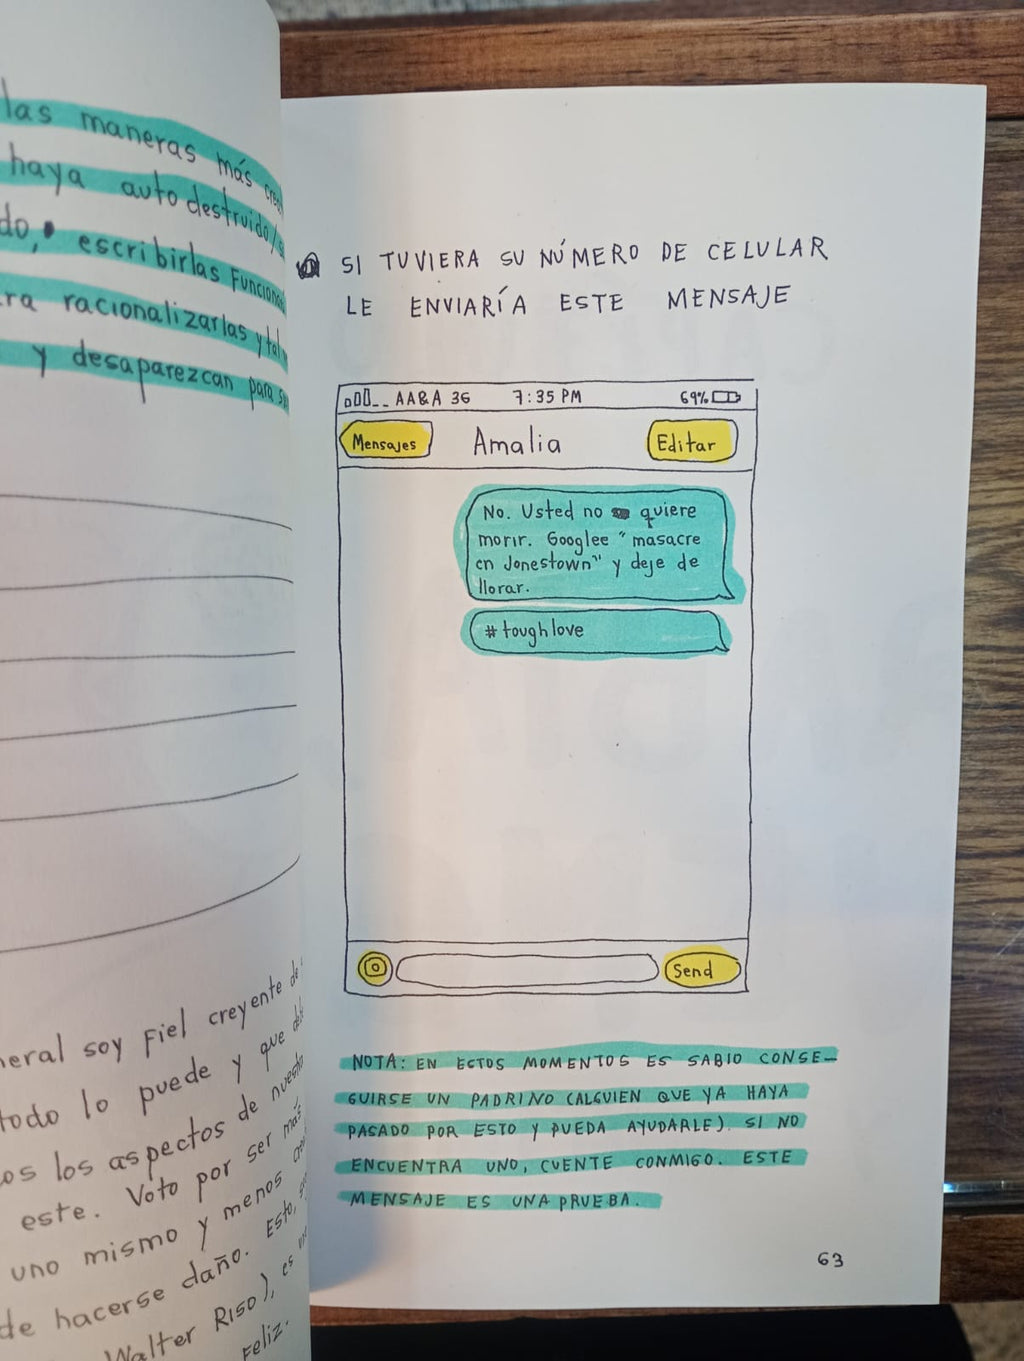 las maneras más
haya auto destruido/
do, escribirlas
ra racionalizarlas y
y desaparezcan para
neral soy fiel creyente de
todo lo puede y que
os los aspectos de
este. Voto por ser más
uno mismo y menos
de hacerse daño. Esto,
Walter Riso), es
Feliz.
SI TUVIERA SU NÚMERO DE CELULAR
LE ENVIARÍA ESTE MENSAJE
AA&A 3G 7:35 PM 69%
Mensajes Amalia Editar
No. Usted no quiere
morir. Googlee "masacre
en Jonestown" y deje de
llorar.
#toughlove
Send
NOTA: EN ECTOS MOMENTOS ES SABIO CONSE-
GUIRSE UN PADRINO (ALGUIEN QUE YA HAYA
PASADO POR ESTO Y PUEDA AYUDARLE). SI NO
ENCUENTRA UNO, CUENTE CONMIGO. ESTE
MENSAJE ES UNA PRUEBA.
63